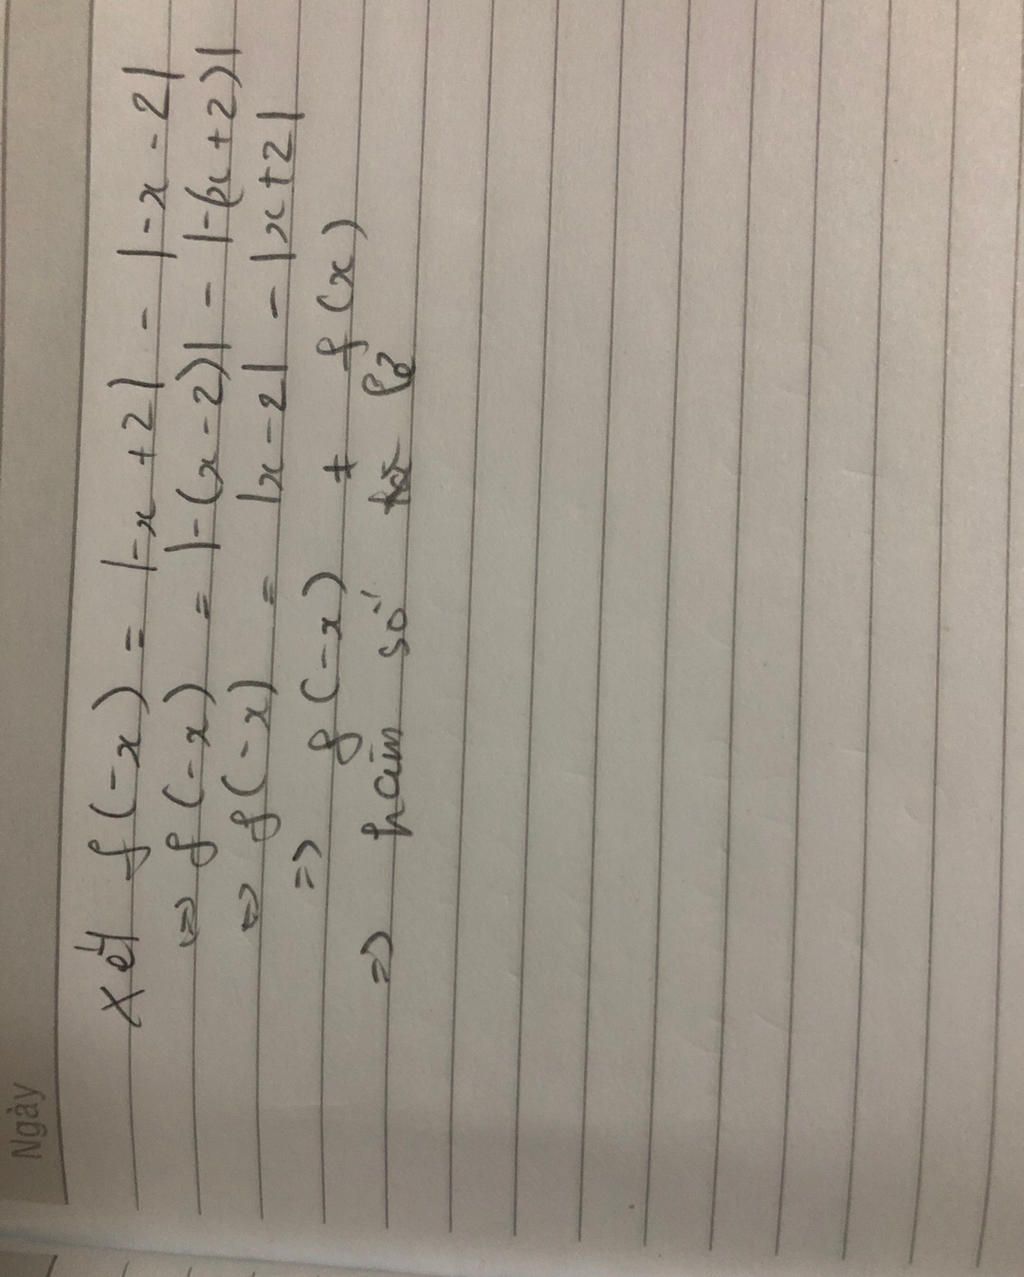 Ngày
Xét f(-x) = |-x+2| - |-x-2|
⇒ f(-x) = |-(x-2)| - |-(x+2)|
⇒ f(-x) = |x-2| - |x+2|
⇒ f(-x) ≠ f(x)
⇒ hàm số lẻ